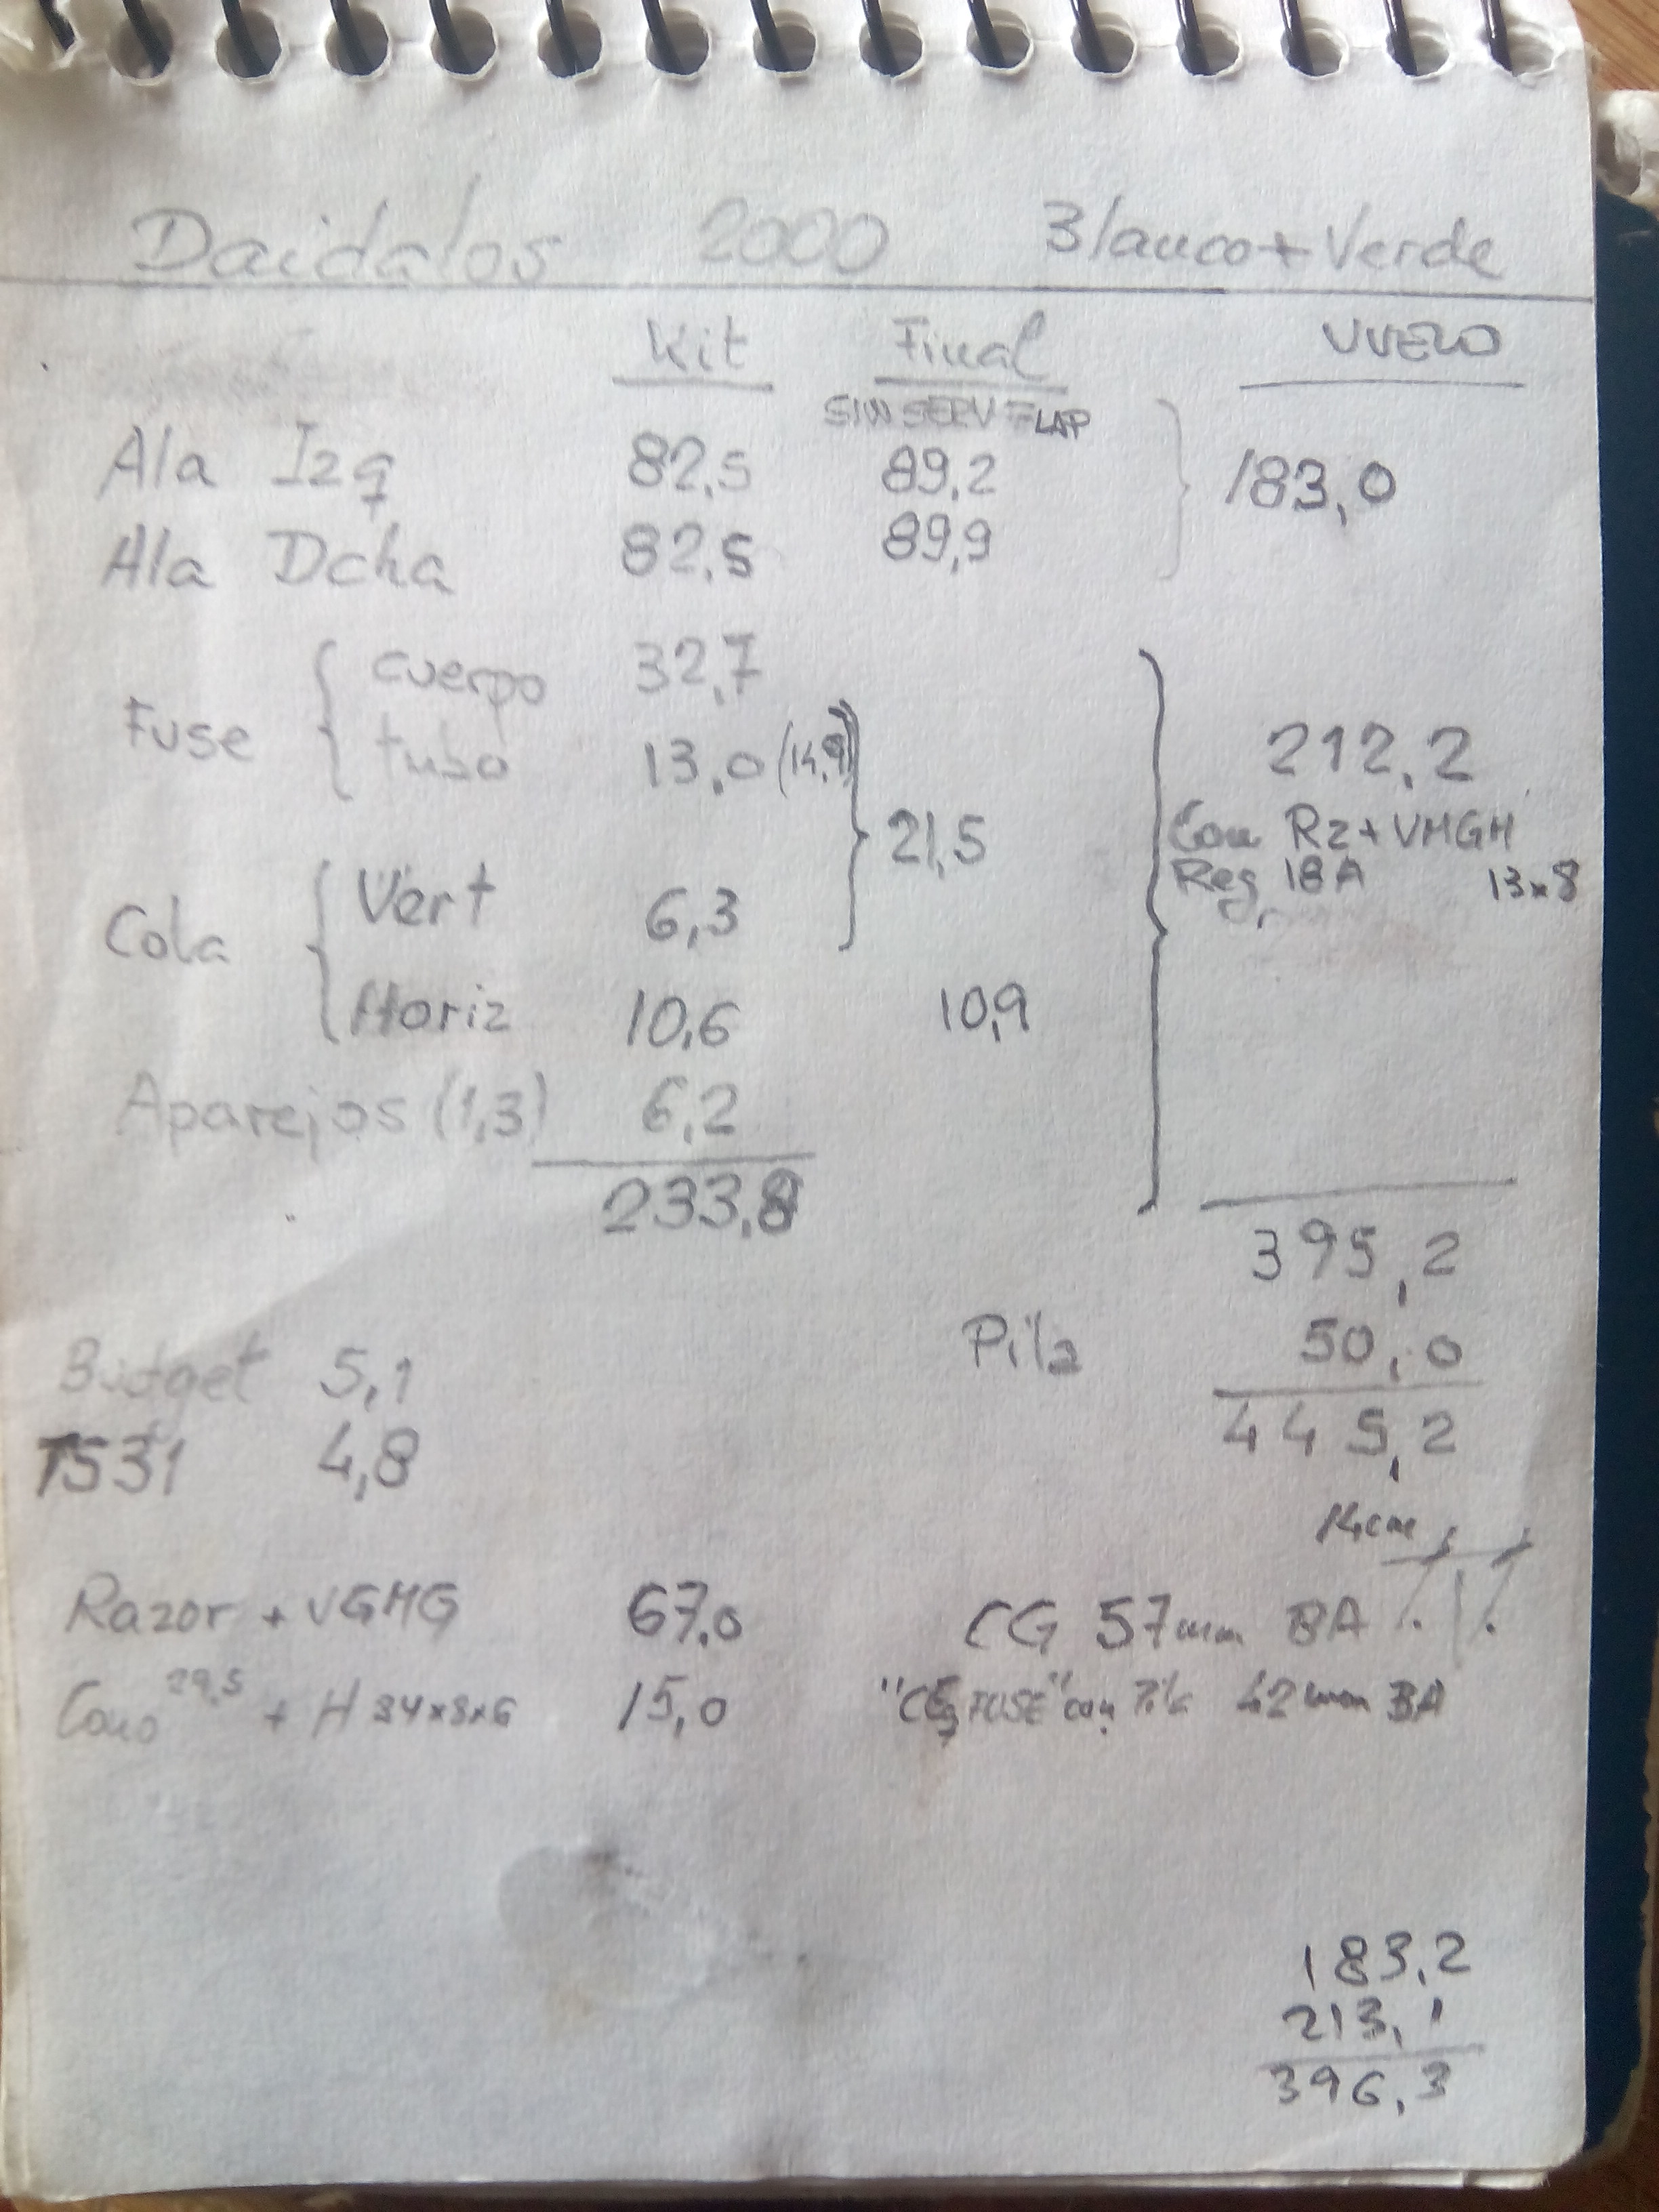 Daidalos 2000 Blanco+Verde
Kit Final VUELO
SIN SERV FLAP
Ala Izq 82,5 89,2 183,0
Ala Dcha 82,5 89,9
Fuse cuerpo 32,7
tubo 13,0 (14,9) 212,2
21,5 Con Rz+VMGM
Reg 18A 13x8
Cola Vert 6,3
Horiz 10,6 10,9
Aparejos (1,3) 6,2
233,8
395,2
Budget 5,1 Pila 50,0
TS31 4,8 445,2
14cm
Razor + VGMG 67,0 CG 57mm BA
Cono 29,5 + H 34x8x6 15,0 "CG FUSE" con Pila 42mm BA
183,2
213,1
396,3